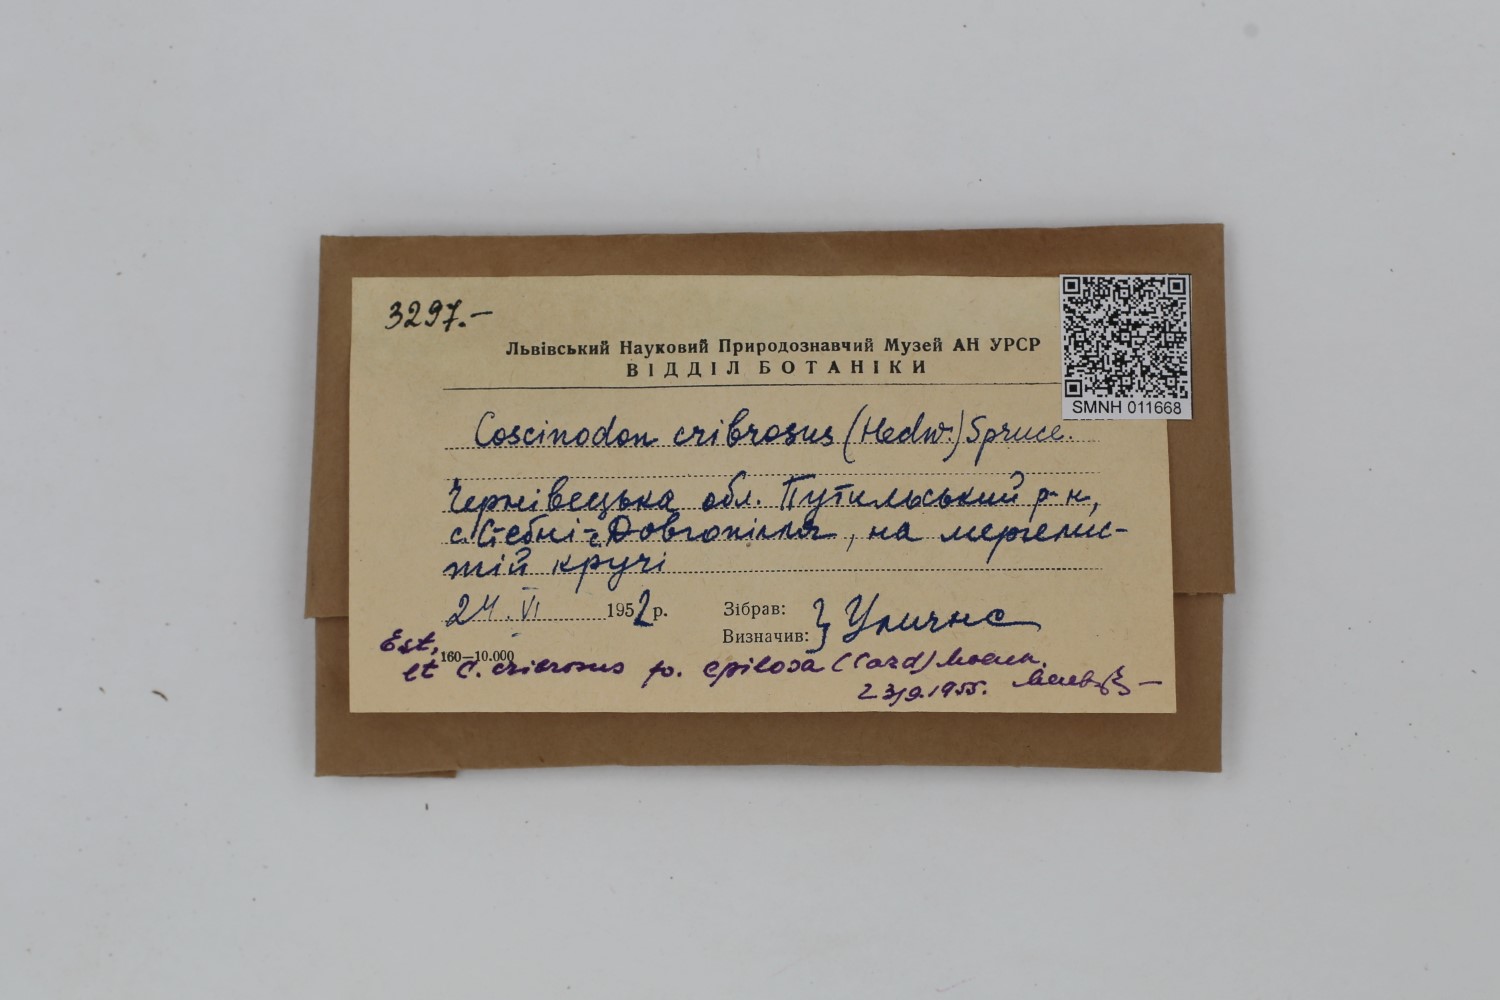 3297.—
Львівський Науковий Природознавчий Музей АН УРСР
ВІДДІЛ БОТАНІКИ
SMNH 011668
Coscinodon cribrosus (Hedw.) Spruce.
Чернівецька обл. Путильський р-н,
с. Стебні-Довгопілля, на мергелис-
тій кручі
24.VI 1952 р.
Зібрав:
Визначив: } Улична
Est,
160—10.000
et C. cribrosus fo. epilosa (Card)
23/9.1955.